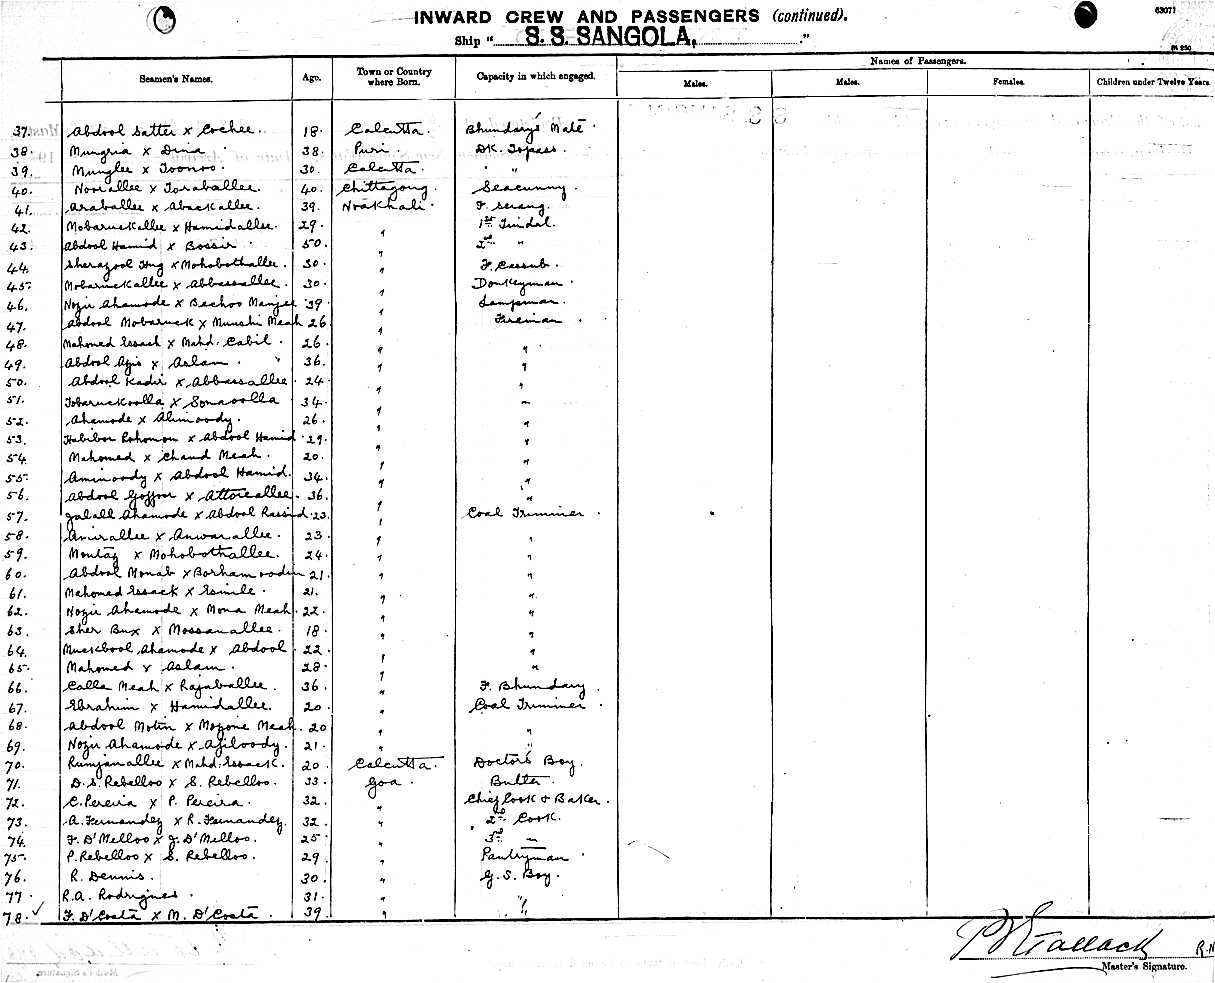 63071
INWARD CREW AND PASSENGERS (continued).
Ship "S. S. SANGOLA,"
Names of Passengers.
Seamen's Names. Age. Town or Country where Born. Capacity in which engaged. Males. Males. Females. Children under Twelve Years.
37. Abdool Satter x Cochee. 18. Calcutta. Bhundary's Mate.
38. Mungria x Dina 38. Puri. DK. Topass.
39. Munglee x Toonoo. 30. Calcutta. " "
40. Noorallee x Toraballee. 40. Chittagong. Seacunny.
41. Araballee x Aback allee. 39. Noakhali. F. Serang.
42. Mobaruckallee x Hamidallee. 29. " 1st Tindal.
43. Abdool Hamid x Bossir 50. " 2nd "
44. Sherazool Huq x Mohobothallee. 30. " F. Cassub.
45. Mobaruckallee x Abbassallee. 30. " Donkeyman.
46. Nozir Ahamode x Bechoo Manjee 39 " Lampman.
47. Abdool Mobaruck x Munshi Meah 26 " Fireman.
48. Mahomed Essack x Mahd. Cabil. 26. " "
49. Abdool Azis x Aslam. 36. " "
50. Abdool Kadir x Abbassallee. 24. " "
51. Tobaruckoolla x Sonaoolla 34. " "
52. Ahamode x Alimoody. 26. " "
53. Habibor Rohomon x Abdool Hamid. 29. " "
54. Mahomed x Chand Meah. 20. " "
55. Aminoody x Abdool Hamid. 34. " "
56. Abdool Goffoor x Attorallee. 36. " "
57. Jalall Ahamode x Abdool Rassid. 23. " Coal Trimmer.
58. Amirallee x Anwarallee. 23. " "
59. Montaz x Mohobothallee. 24. " "
60. Abdool Monab x Borhamoodin 21. " "
61. Mahomed Essack x Esmile. 21. " "
62. Nozir Ahamode x Mona Meah. 22. " "
63. Sher Bux x Mossanallee. 18 " "
64. Muckbool Ahamode x Abdool. 22. " "
65. Mahomed x Aslam. 28. " "
66. Calla Meah x Rajaballee. 36 " F. Bhundary.
67. Ebrahim x Hamidallee. 20. " Coal Trimmer.
68. Abdool Motin x Mozone Meah. 20 " "
69. Nozir Ahamode x Afiloody. 21. " "
70. Rumjanallee x Mahd. Essack. 20 Calcutta. Doctor's Boy.
71. D. S. Rebelloo x S. Rebelloo. 33. Goa. Butler.
72. C. Pereira x P. Pereira. 32. " Chief Cook & Baker.
73. A. Fernandez x R. Fernandez. 32. " 2nd Cook.
74. F. D'Melloo x J. D'Melloo. 25 " 3rd "
75. P. Rebelloo x S. Rebelloo. 29 " Pantryman
76. R. Dennis. 30. " G. S. Boy.
77. R. A. Rodrigues. 31. " "
78. F. D'Costa x M. D'Costa. 39. " "
Master's Signature.